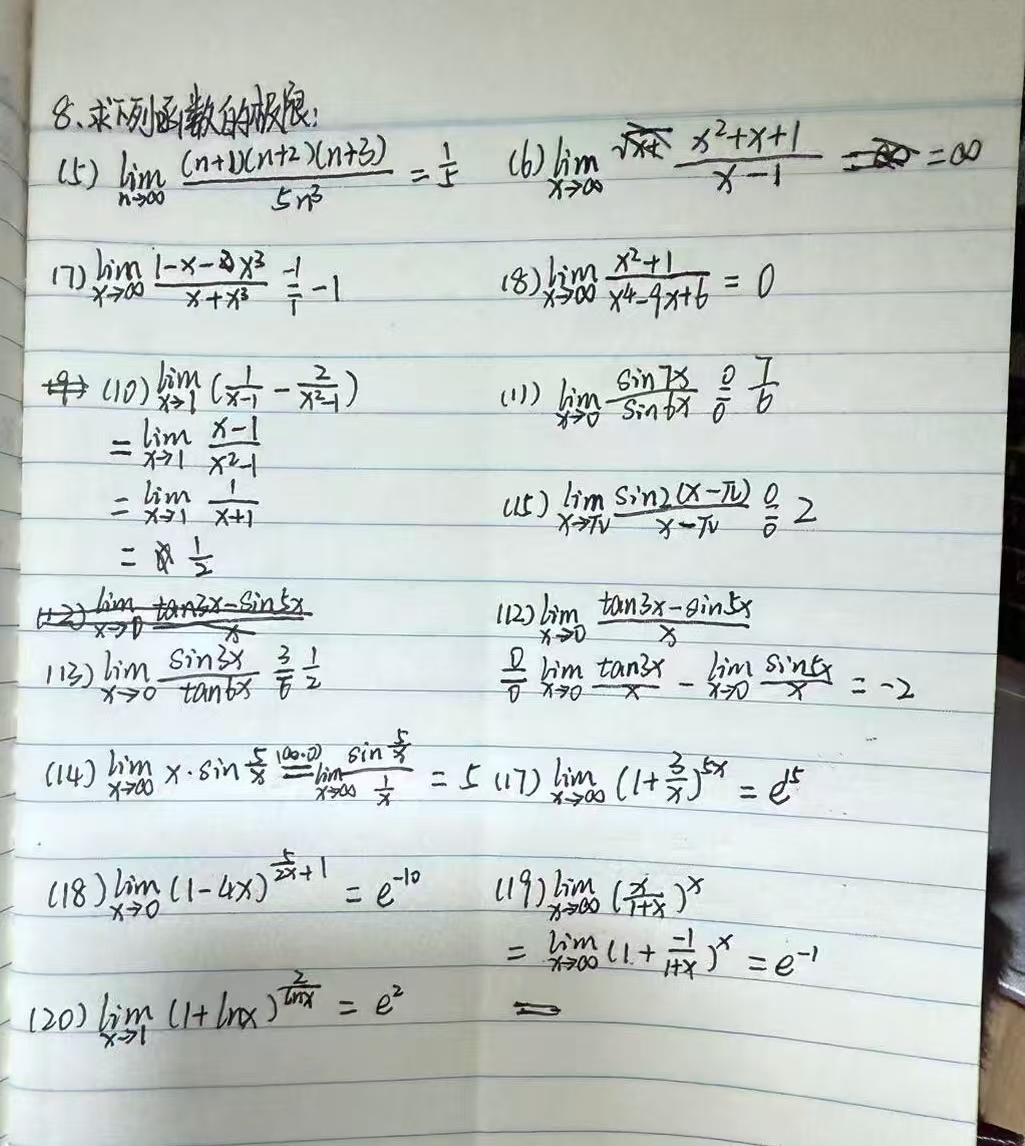 8、求下列函数的极限:
(5) lim n→∞ (n+1)(n+2)(n+3) / 5n³ = 1/5
(6) lim x→∞ x²+x+1 / x-1 = ∞
(7) lim x→∞ 1-x-x³ / x+x³ = -1/1 = -1
(8) lim x→∞ x²+1 / x⁴-9x+6 = 0
(10) lim x→1 (1/(x-1) - 2/(x²-1))
= lim x→1 x-1 / x²-1
= lim x→1 1 / x+1
= 1/2
(11) lim x→0 sin7x / sin6x 0/0 = 7/6
(15) lim x→π sin2(x-π) / x-π 0/0 = 2
(12) lim x→0 tan3x-sin5x / x
(12) lim x→0 tan3x-sin5x / x
0/0 = lim x→0 tan3x / x - lim x→0 sin5x / x = -2
(13) lim x→0 sin3x / tan6x = 3/6 = 1/2
(14) lim x→∞ x·sin 5/x (∞·0) = lim x→∞ sin 5/x / 1/x = 5
(17) lim x→∞ (1+3/x)^5x = e^15
(18) lim x→0 (1-4x)^(5/2x+1) = e^-10
(19) lim x→∞ (x/(1+x))^x
= lim x→∞ (1+ -1/(1+x))^x = e^-1
(20) lim x→1 (1+lnx)^(2/lnx) = e²
=